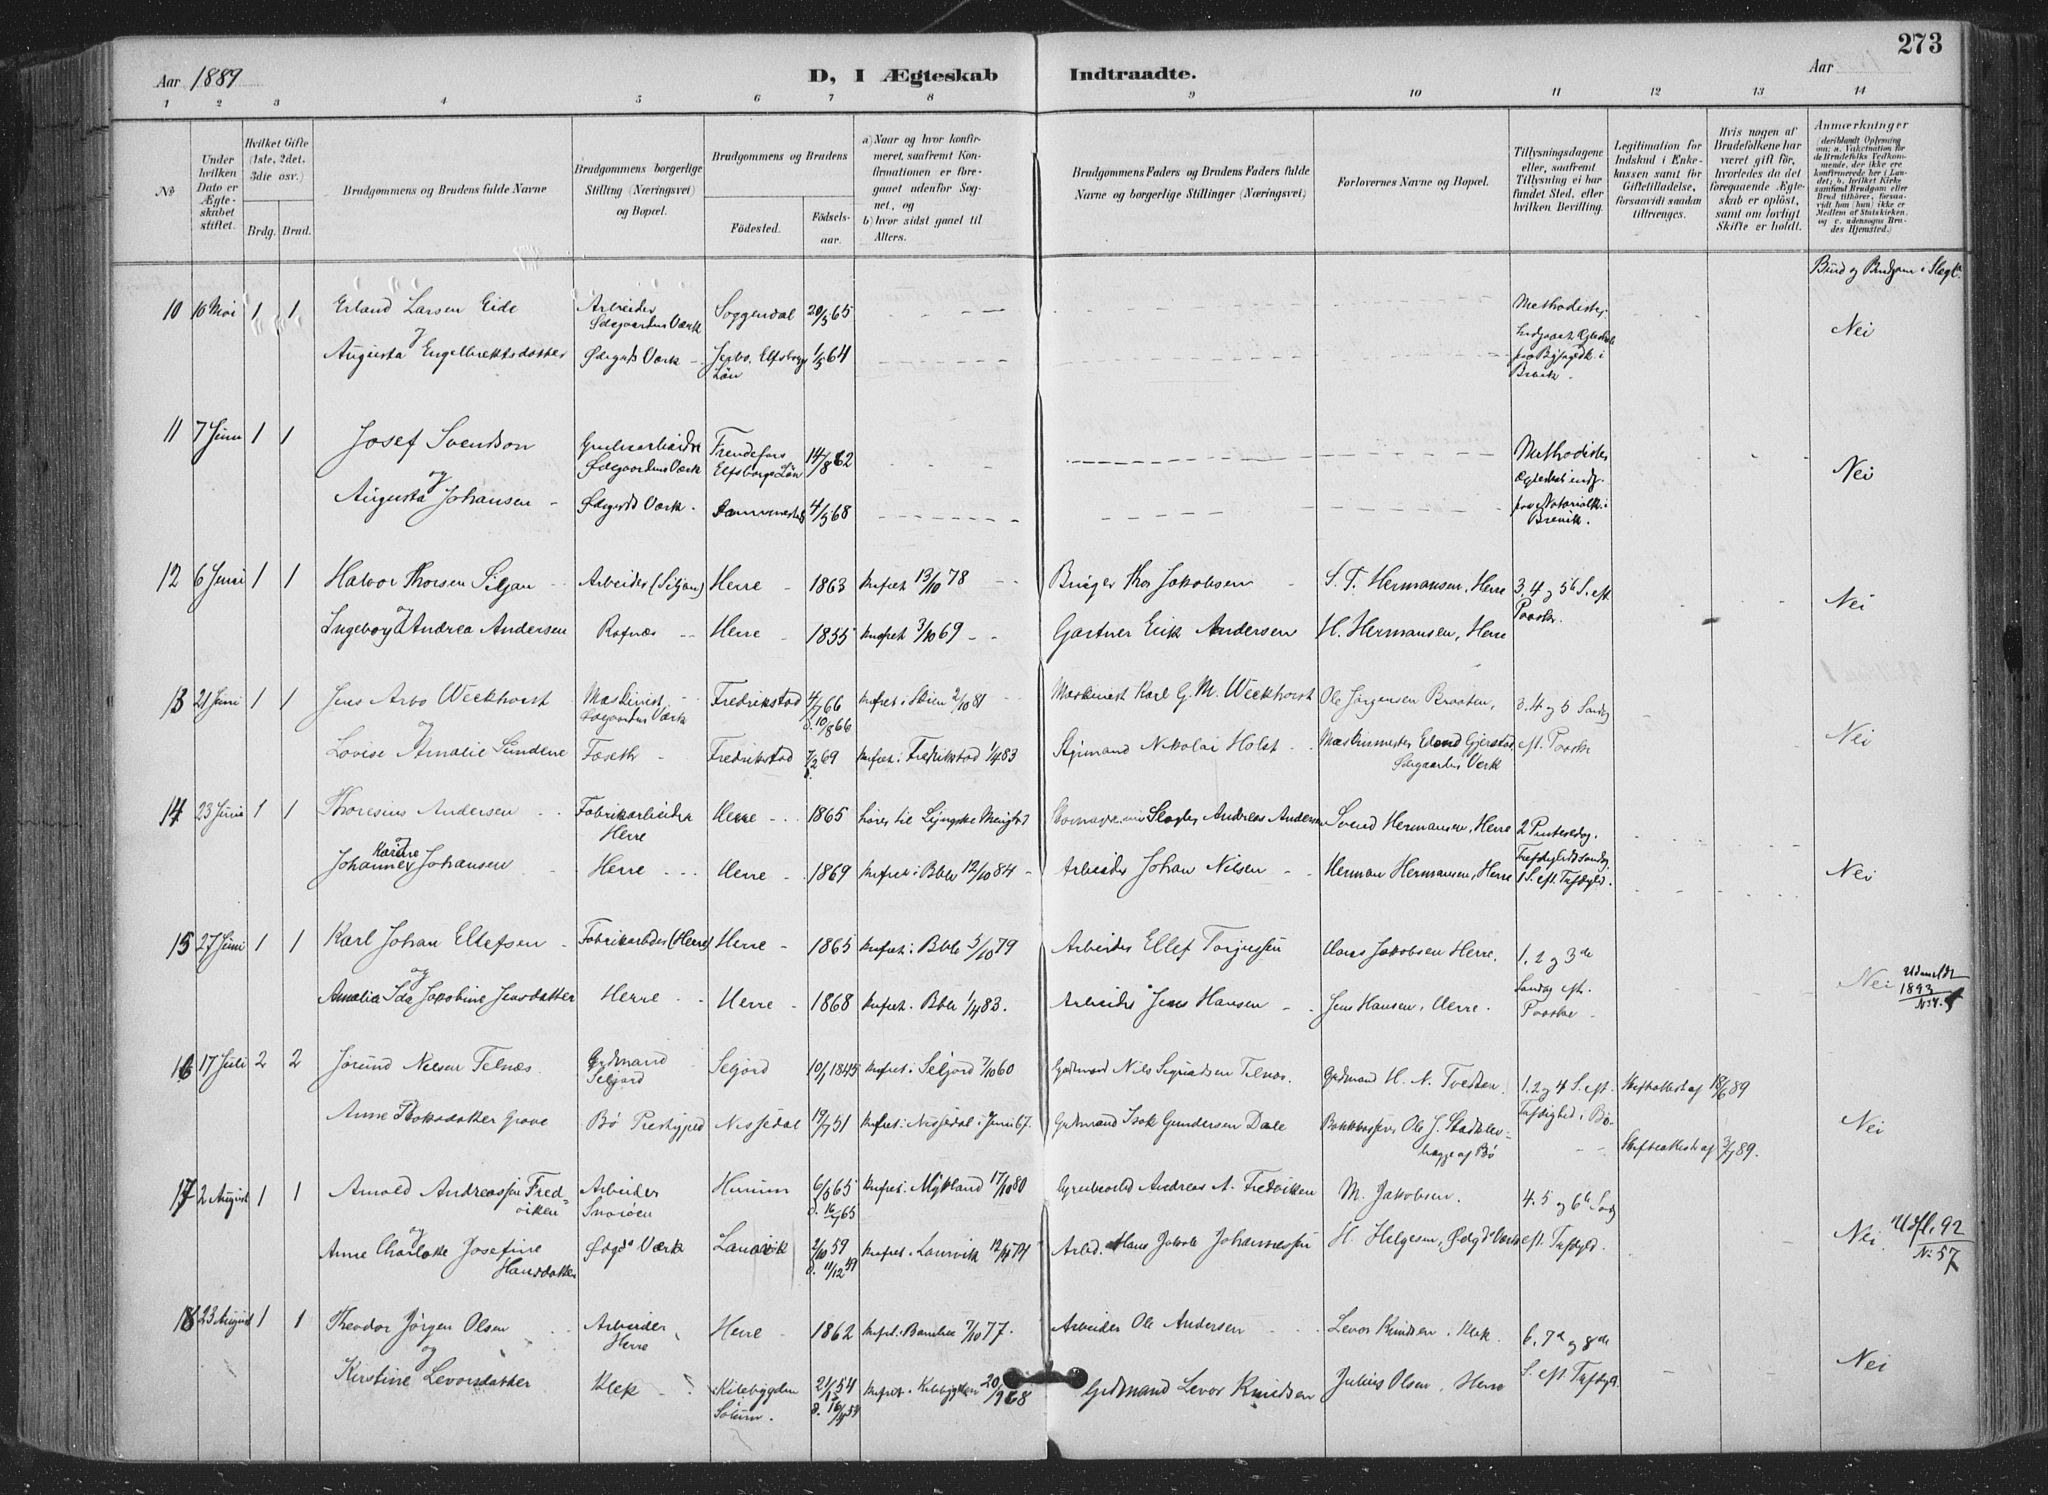 273
Aar 1889
D, I Ægteskab Indtraadte.
Aar
1 2 3 4 5 6 7 8 9 10 11 12 13 14
No
Under hvilken Dato er Ægteskabet stiftet.
Hvilket Gifte (1ste, 2det, 3die osv.)
Brdg. Brud.
Brudgommens og Brudens fulde Navne
Brudgommens borgerlige Stilling (Næringsvei) og Bopæl.
Brudgommens og Brudens
Födested.
Födselsaar.
a) Naar og hvor konfirmeret, saafremt Konfirmationen er foregaaet udenfor Sognet, og
b) hvor sidst gaaet til Alters.
Brudgommens Faders og Brudens Faders fulde Navne og borgerlige Stillinger (Næringsvei)
Forlovernes Navne og Bopæl.
Tillysningsdagene eller, saafremt Tillysning ei har fundet Sted, efter hvilken Bevilling.
Legitimation for Indskud i Enkekassen samt for Giftetilladelse, forsaavidt saadan tiltrænges.
Hvis nogen af Brudefolkene har været gift för, hvorledes da det foregaaende Ægteskab er oplöst, samt om lovligt Skifte er holdt.
Anmærkninger
(deriblandt Oplysning om: a. Vakcination for de Brudefolks Vedkommende, der ikke ere konfirmerede her i Landet; b. hvilket Kirkesamfund Brudgom eller Brud tilhörer, forsaavidt han (hun) ikke er Medlem af Statskirken, og c. udensogns Brudes Hjemsted.)
Brud og Brudgom i Slegt.
10 16 Mai 1 1 Erland Larsen Eide Arbeider Soggendal 20/5 65 Methodister
og Ødegaardens Værk
Augusta Engelbrektsdatter Ødegrds Værk Elfsborgs 1/5 64
Län
Brevik.
Nei
11 7 Juni 1 1 Josef Svendson Grubearbeider Frendefors 14/8 62 Methodister
og Ødegaardens Værk Elfsborgs Län
Augusta Johansen Ødegrds Værk. Sammesteds 4/5 68
Notarialk. i
Brevik.
Nei
12 6 Juni 1 1 Halvor Thorsen Siljan Arbeider (Siljan) Herre 1863 knfret 13/10 78 Thor Jakobsen S. T. Hermansen, Herre 3. 4 og 5te S. eft.
og Paaske.
Ingeborg Andrea Andersen Rafnæs Herre 1855 knfret 3/10 69 Gartner Erik Andersen H. Hermansen, Herre
Nei
13 21 Juni 1 1 Jens Arbo Weckhorst Maskinist Fredrikstad 4/7 66 knfret i Skien 2/10 81 Maskinist Karl G. M. Weckhorst Ole Jørgensen Braaten, 3. 4 og 5 Søndag
og Ødegaardens Værk d. 10/8 66
Lovise Amalie Sundene Foseth Fredrikstad 7/2 69 knfret i Fredrikstad 1/4 83 Nikolai Holst Maskinmester Edvard Gjerstad eft. Paaske
Ødegaardens Værk
Nei
14 23 Juni 1 1 Thoresius Andersen Fabrikarbeider Herre 1865 hører til Menighed Andreas Andersen Svend Hermansen, Herre 2 Pintesdag.
Herre
Karine
Johanne Johansen Herre Herre 1869 knfret i Bble 12/10 84 Arbeider Johan Nilsen Herman Hermansen, Herre Trefoldighedssøndag
1 S. eft. Trefdghd.
Nei
15 27 Juni 1 1 Karl Johan Ellefsen Fabrikarbeider (Herre) Herre 1865 knfret i Bble 5/10 79 Arbeider Ellef Torjussen Claus Jakobsen Herre. 1. 2 og 3de
og Søndag eft.
Amalia Ida Jakobine Jensdatter Herre Herre 1868 knfret i Bble 1/4 83. Arbeider Jens Hansen Jens Hansen, Herre. Paaske
Nei Udmeldt
1893
16 17 Juli 2 2 Jørund Nielsen Telnæs Grdmand Seljord 10/1 1845 knfret i Seljord 7/10 60 Grdmand Nils Sigurdsen Telnæs. Grdmand H. N. Tvedten 1. 2 og 4 S. eft. Skifteattest af 18/6 89
Seljord Trefdighed i Bø.
Anne Isaksdatter Grave Bø Prestegjeld Nissedal 19/7 51 knfret i Nissedal i Juni 67. Grdmand Isak Gundersen Dale Ole J. Stadskleiv Skifteattest af 3/7 89.
begge af Bø
Nei
17 2 August 1 1 Arnold Andreassen Fred- Arbeider Hurum 6/5 65 knfret i Mykland 17/10 80 Andreas A. Fredviken M. Jakobsen. 4. 5 og 6te Søndg
viken Snarøen d. 16/7 65
og
Anne Charlotte Josefine Ødgds Værk Laurvik 2/10 59 knfret i Laurvik 12/ 74 Arbd. Hans Jakob Johannessen H. Helgesen, Ødgds Værk eft. Trefdghd.
Hansdatter d. 11/12 59
Nei. Udfl. 92
No 57
18 23 August 1 1 Theodor Jørgen Olsen Arbeider Herre 1862 knfret i Bamble 7/10 77. Arbeider Ole Andersen Levor Knudsen, Klek. 6. 7de og 8de
og Herre S. eft. Trefdghd.
Kirstine Levorsdatter Klek Kilebygden 2/1 54 knfret i Kilebygden 20/9 68 Grdmand Levor Knudsen Julius Olsen, Herre
Solum.
Nei